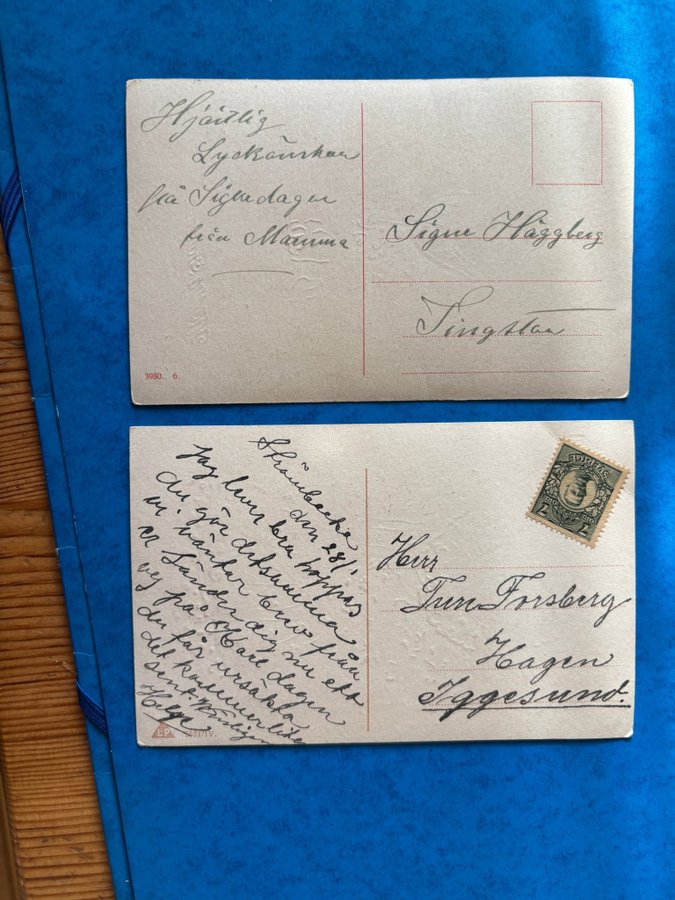 Hjärtlig
Lyckönskan
på Signedagen
från Mamma
Signe Häggberg
Tingstan
3980. 6.
Strömbacka
den 28/1
Jag lever bra hoppas
du gör detsamma
vi väntar brev från
er Sänder dig nu ett
på Karl dagen
du får ursäkta
det kommer lite
sent. Vänligen
Helge
Herr
Ture Forsberg
Hagen
Iggesund.
SVERIGE
7 7
L.P